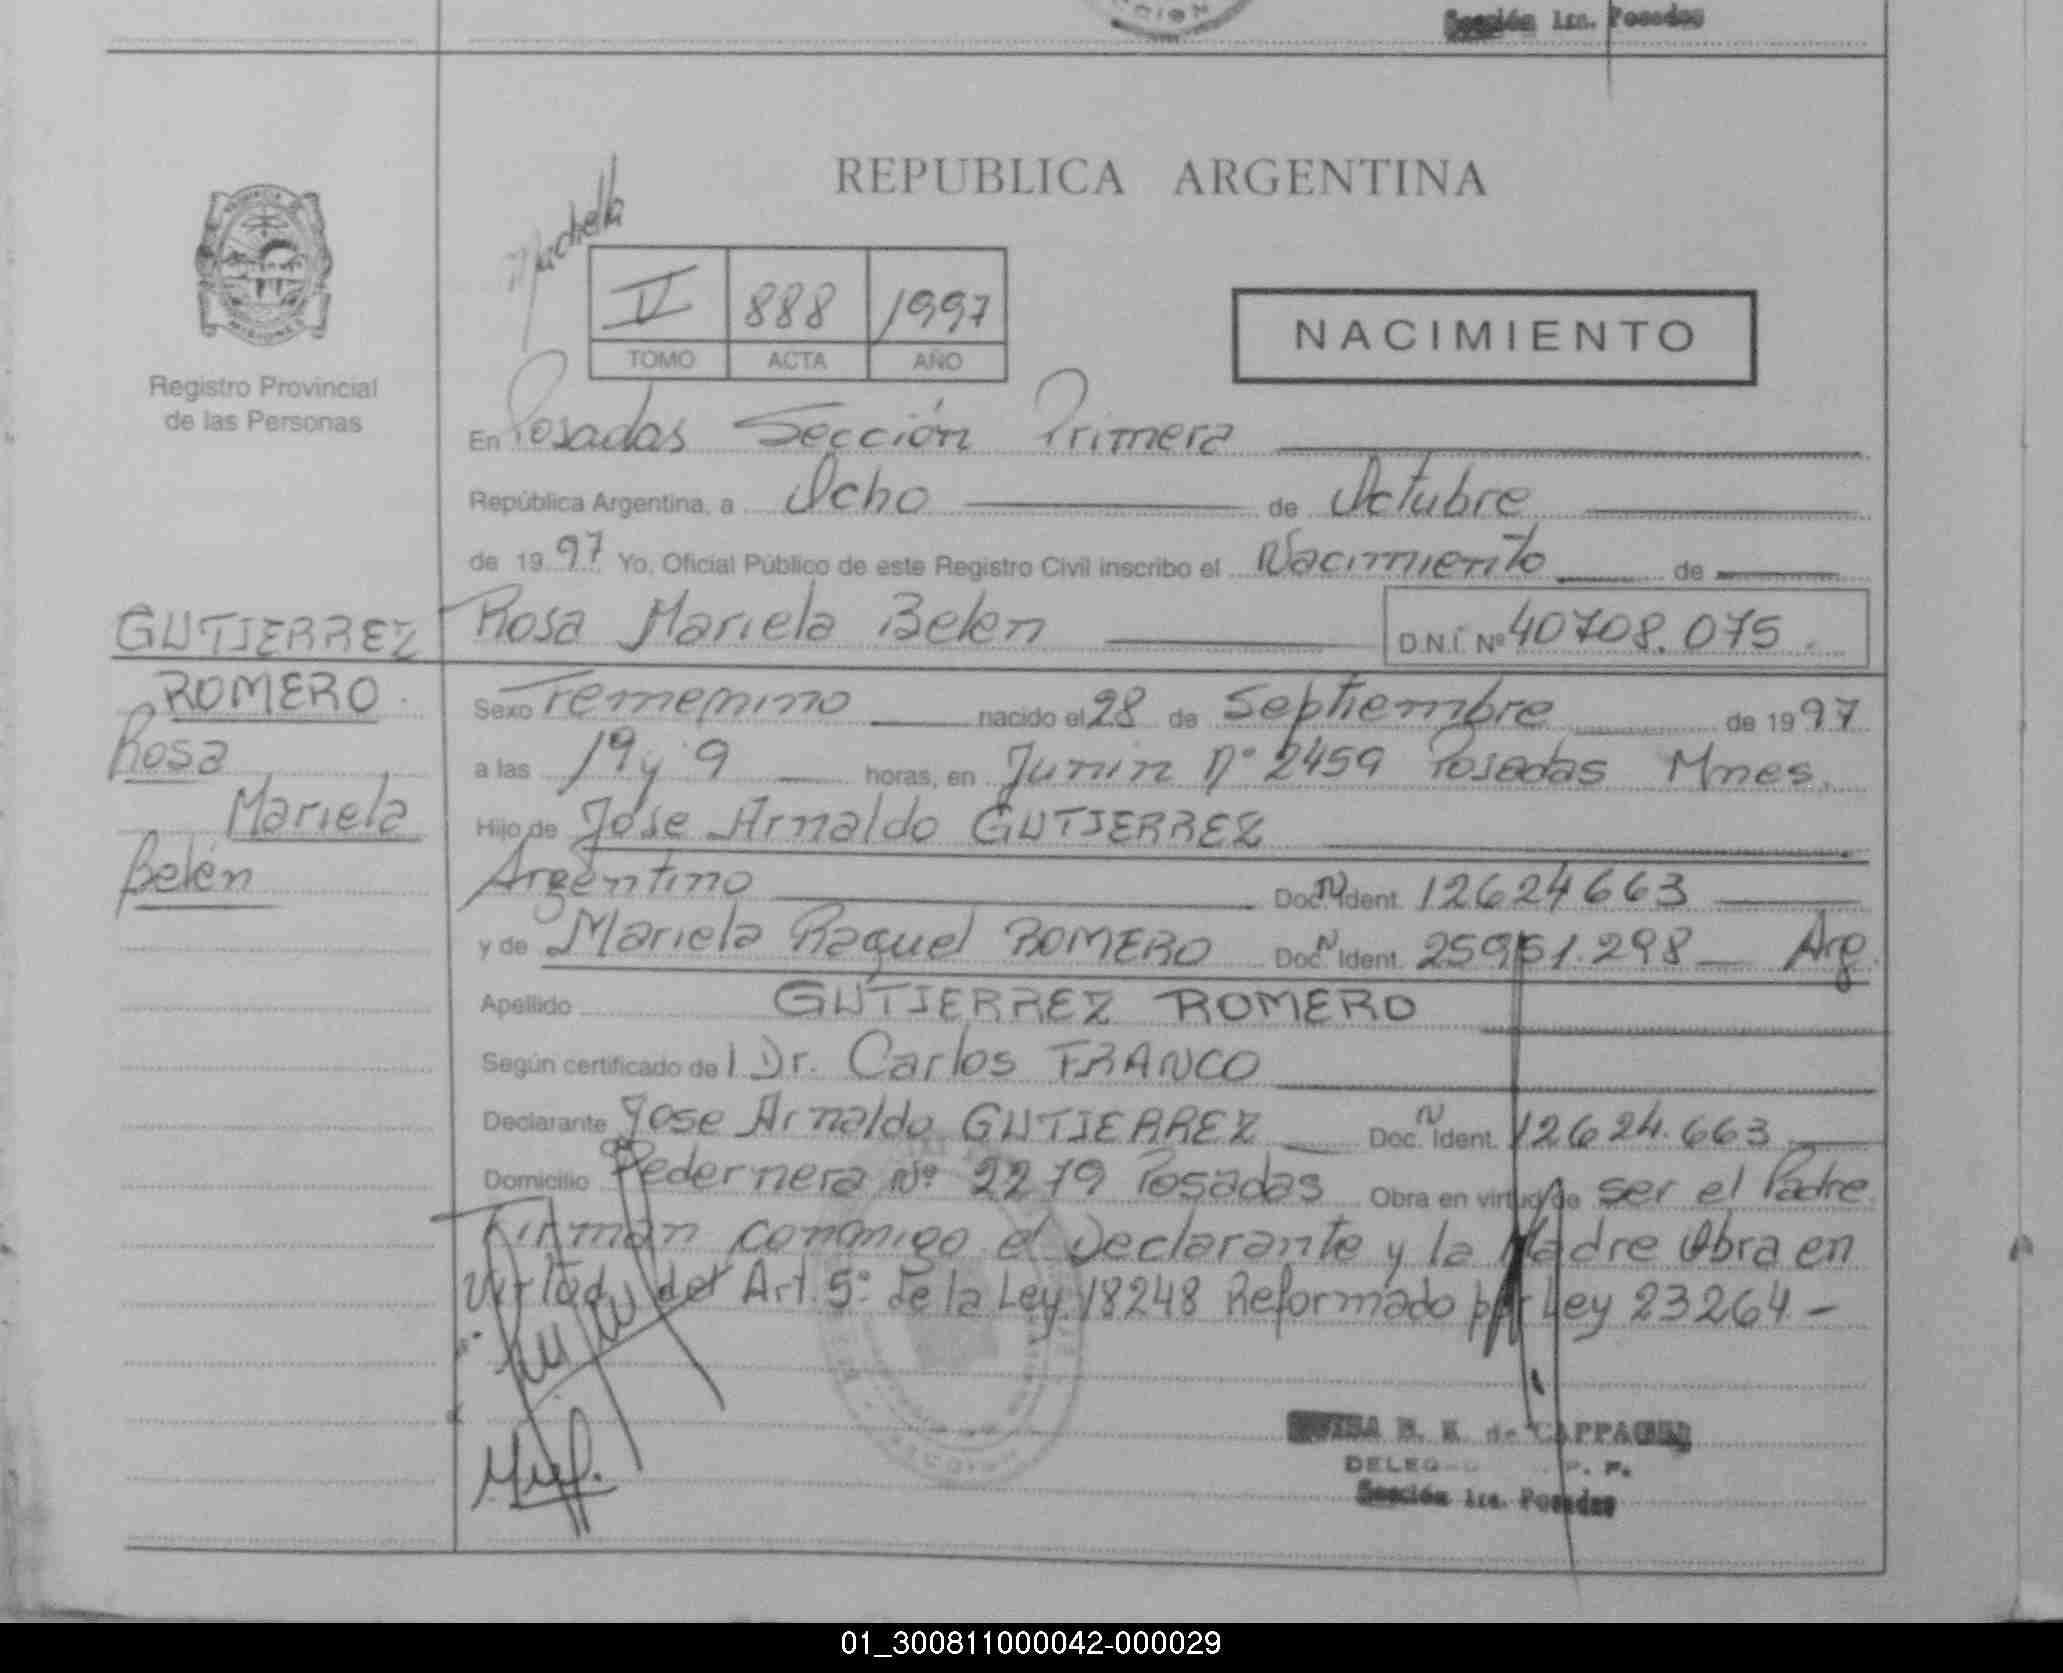 Sección 1ra. Posadas
REPUBLICA ARGENTINA
IV 888 1997
TOMO ACTA AÑO
NACIMIENTO
Registro Provincial
de las Personas
En Posadas Sección Primera
República Argentina, a Ocho de Octubre
de 1997 Yo, Oficial Público de este Registro Civil inscribo el Nacimiento de
Rosa Mariela Belen D.N.I. Nº 40708.075.
GUTIERREZ
ROMERO.
Rosa
Mariela
Belén
Sexo Femenino nacido el 28 de Septiembre de 1997
a las 19 y 9 horas, en Junin Nº 2459 Posadas Mnes.
Hijo de Jose Arnaldo GUTIERREZ
Argentino Doc. N. Ident. 12624663
y de Mariela Raquel ROMERO Doc. N. Ident. 25951.298 Arg.
Apellido GUTIERREZ ROMERO
Según certificado del Dr. Carlos FRANCO
Declarante Jose Arnaldo GUTIERREZ Doc. N. Ident. 12624.663
Domicilio Pedernera Nº 2279 Posadas Obra en virtud de ser el Padre.
Firman conmigo el Declarante y la Madre Obra en
Virtud del Art. 5º de la Ley 18248 Reformado por Ley 23264.-
de CAPPA
Sección 1ra. Posadas
01_300811000042-000029